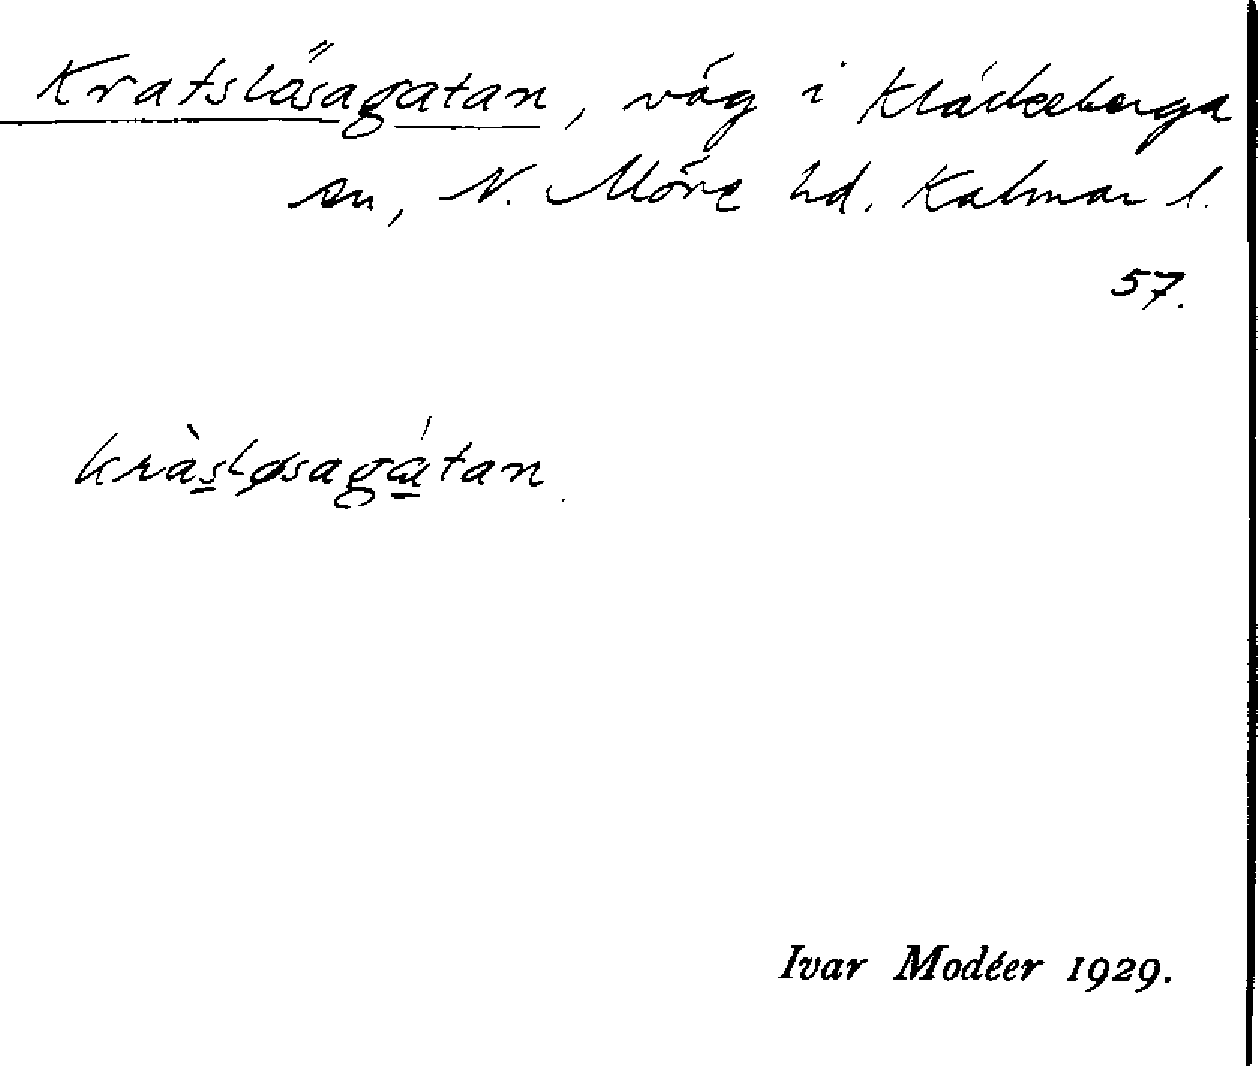 Kratslösagatan, väg i Kläckeberga
sn, N. Möre hd. Kalmar l.
57.
kràsløsagátan
Ivar Modéer 1929.